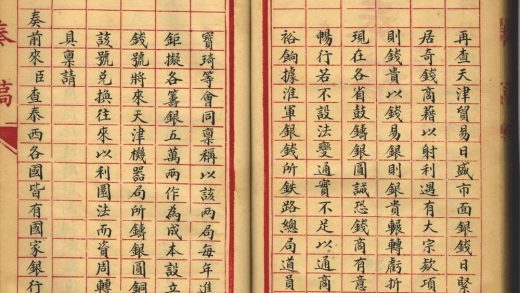 再查天津貿易日盛市面銀錢日緊
居奇錢商藉以射利遇有大宗款項
則錢貴以錢易銀則銀貴輾轉虧折
現在各省鼓鑄銀圓誠恐錢商有意
暢行若不設法變通實不足以通商
裕餉據淮軍銀錢所鉄路總局道員
寶琦等會同稟稱以該兩局每年進
鉅擬各籌銀五萬兩作為成本設立
錢號將來天津機器局所鑄銀圓銅
該號兌換往來以利圜法而資周轉
具稟請
奏前來臣查泰西各國皆有國家銀行
奏稿